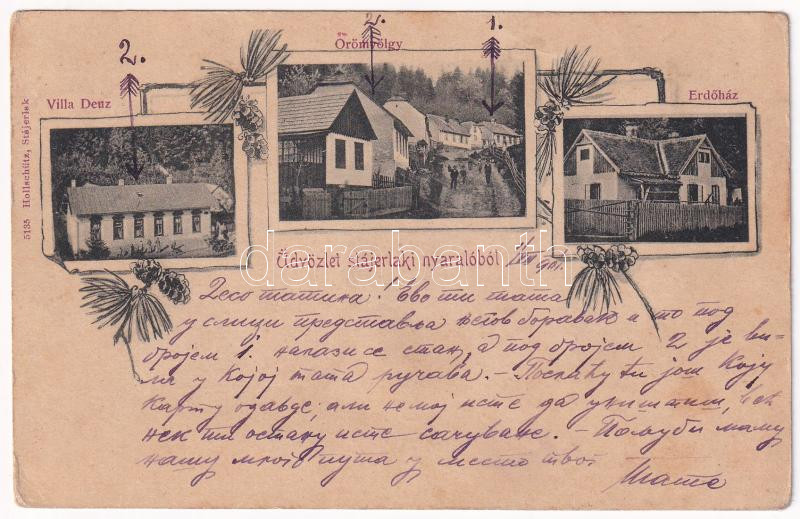 2. 2. 1.
Örömvölgy
Villa Deuz
Erdőház
5135 Hollschütz, Stájerlak
Üdvözlet stájerlaki nyaralóból
darabanth
Десо татина! Ево ти тата
у слици представља његов боравак и то под
бројем 1. налази се стан, а под бројем 2 је ви-
ла у којој тата ручава. – Послаћу ти још коју
карту одавде, али немој исте да уништиш, већ
нек ти остану исте сачуване. – Пољуби маму
нашу много пута у место твог
Тате